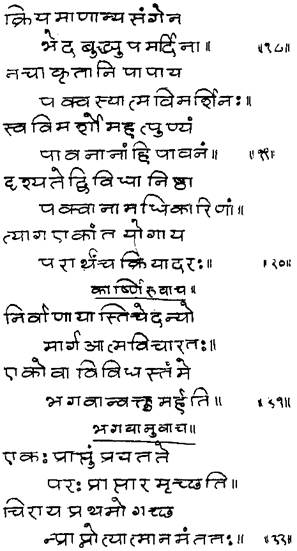 क्रियमाणान्यसंगेन
भेदबुद्ध्युपमर्दिना॥ ॥१८॥
नचाकृतानि पापाय
पक्वस्यात्मविमर्शिनः॥
स्वविमर्शो महत्पुण्यं
पावनानांहि पावनं॥ ॥१९॥
दृश्यते द्विविधा निष्ठा
पक्वानामधिकारिणां॥
त्याग एकांत योगाय
परार्थंच क्रियादरः॥ ॥२०॥
कार्ष्णिरुवाच॥
निर्वाणायास्ति चेदन्यो
मार्ग आत्मविचारतः॥
एकोवा विविधस्तंमे
भगवान्वक्तुमर्हति॥ ॥२१॥
भगवानुवाच॥
एकः प्राप्तुं प्रयतते
परः प्राप्तारमृच्छति॥
चिराय प्रथमो गच्छ
न्प्राप्नोत्यात्मानमंततः॥ ॥२२॥